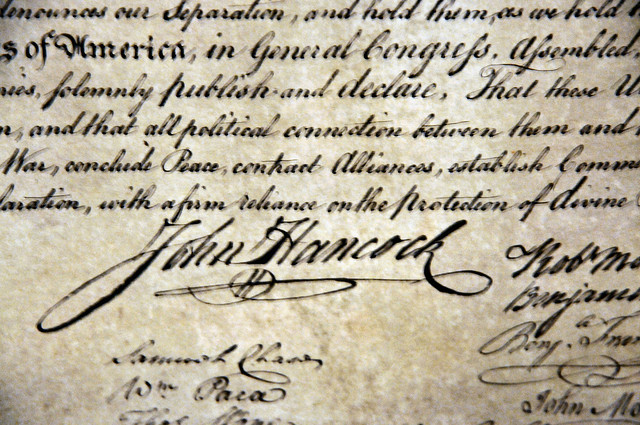 denounces our Separation, and hold them, as we hold
s of America, in General Congress, Assembled,
nies, solemnly publish and declare, That these U
n, and that all political connection between them and
War, conclude Peace, contract Alliances, establish Comme
laration, with a firm reliance on the protection of divine
John Hancock
Rob^t Mo
Benjami
Benj. Fran
John Mo
Samuel Chase
W^m Paca
Thos Stone